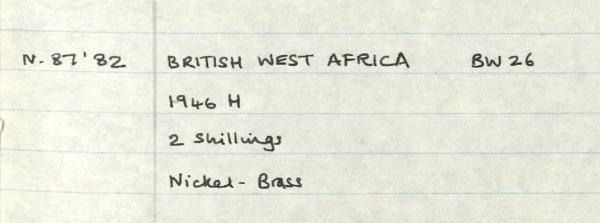 N. 87'82 BRITISH WEST AFRICA BW 26
1946 H
2 Shillings
Nickel - Brass